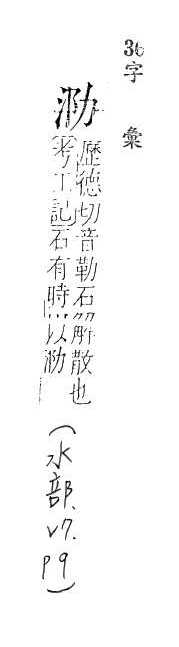 36 字彙
泐
歷德切音勒石解散也
考工記石有時以泐
(水部、V7. P9)